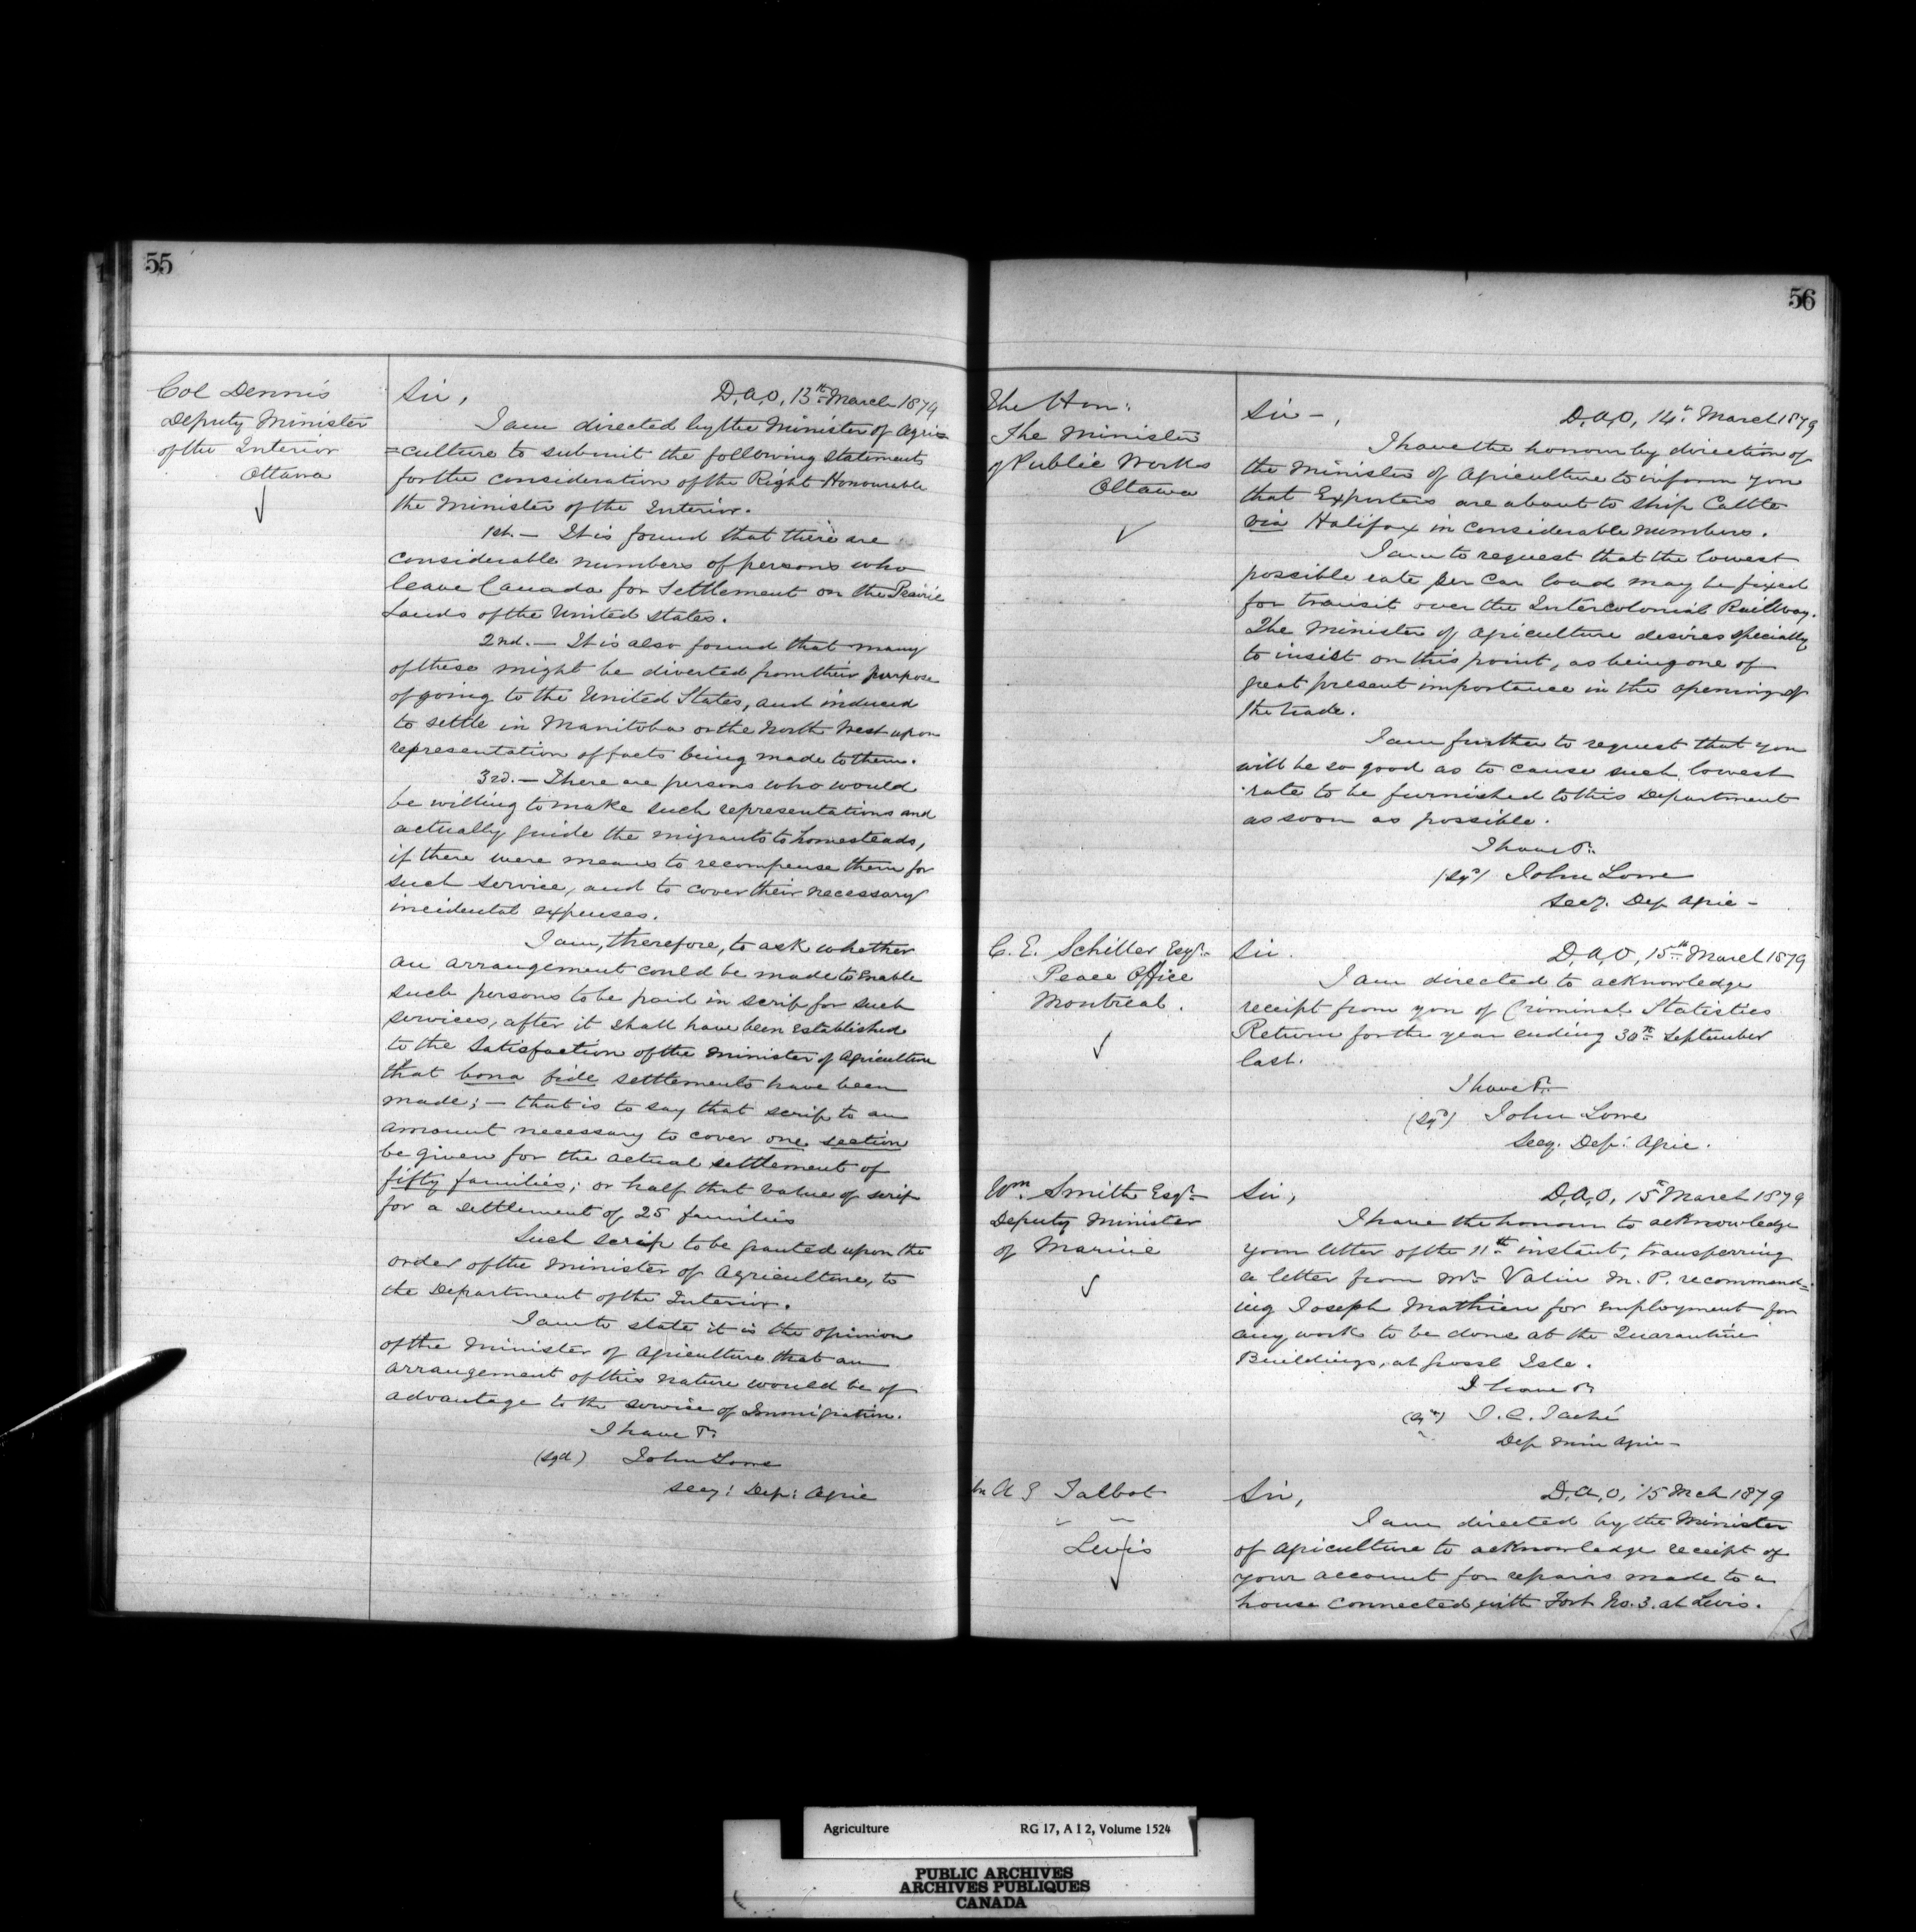 55
Col Dennis
Deputy Minister
of the Interior
Ottawa
Sir, D.A.O, 13th March 1879
I am directed by the Minister of Agri=
=culture to submit the following statements
for the consideration of the Right Honourable
the Minister of the Interior.
1st. — It is found that there are
considerable numbers of persons who
leave Canada for settlement on the Prairie
Lands of the United States.
2nd. — It is also found that many
of these might be diverted from their purpose
of going to the United States, and induced
to settle in Manitoba or the North West upon
representation of facts being made to them.
3rd. — There are persons who would
be willing to make such representations and
actually guide the migrants to homesteads,
if there were means to recompense them for
such service, and to cover their necessary
incidental expenses.
I am, therefore, to ask whether
an arrangement could be made to enable
such persons to be paid in scrip for such
services, after it shall have been established
to the satisfaction of the Minister of Agriculture
that bona fide settlements have been
made; — that is to say that scrip to an
amount necessary to cover one section
be given for the actual settlement of
fifty families; or half that value of scrip
for a settlement of 25 families
Such scrip to be granted upon the
order of the Minister of Agriculture, to
the Department of the Interior.
I am to state it is the opinion
of the Minister of Agriculture that an
arrangement of this nature would be of
advantage to the service of Immigration.
I have &c.
(sgd) John Lowe
Secy: Dep: Agric
56
The Hon:
The Minister
of Public Works
Ottawa
Sir —, D.A.O, 14th March 1879
I have the honour by direction of
the Minister of Agriculture to inform you
that Exporters are about to ship Cattle
via Halifax in considerable numbers.
I am to request that the lowest
possible rate per Car load may be fixed
for transit over the Intercolonial Railway.
The Minister of Agriculture desires specially
to insist on this point, as being one of
great present importance in the opening of
the trade.
I am further to request that you
will be so good as to cause such lowest
rate to be furnished to this Department
as soon as possible.
I have &c.
(sgd) John Lowe
Secy. Dep Agric —
C. E. Schiller Esqr.
Peace Office
Montreal.
Sir. D.A.O, 15th March 1879
I am directed to acknowledge
receipt from you of Criminal Statistics
Return for the year ending 30th September
last.
I have &c.
(sgd) John Lowe
Secy. Dep: Agric.
Wm. Smith Esqr
Deputy Minister
of Marine
Sir, D.A.O, 15th March 1879
I have the honour to acknowledge
your letter of the 11th instant, transferring
a letter from Mr. Valin M. P. recommend=
ing Joseph Mathieu for employment for
any work to be done at the Quarantine
Buildings, at Grosse Isle.
I have &c
(sgd) J. C. Taché
Dep Min Agric —
Mr A G Talbot
Levis
Sir, D.A.O, 15 Mch 1879
I am directed by the Minister
of Agriculture to acknowledge receipt of
your account for repairs made to a
house connected with Fort No. 3. at Levis.
Agriculture RG 17, A I 2, Volume 1524
PUBLIC ARCHIVES
ARCHIVES PUBLIQUES
CANADA